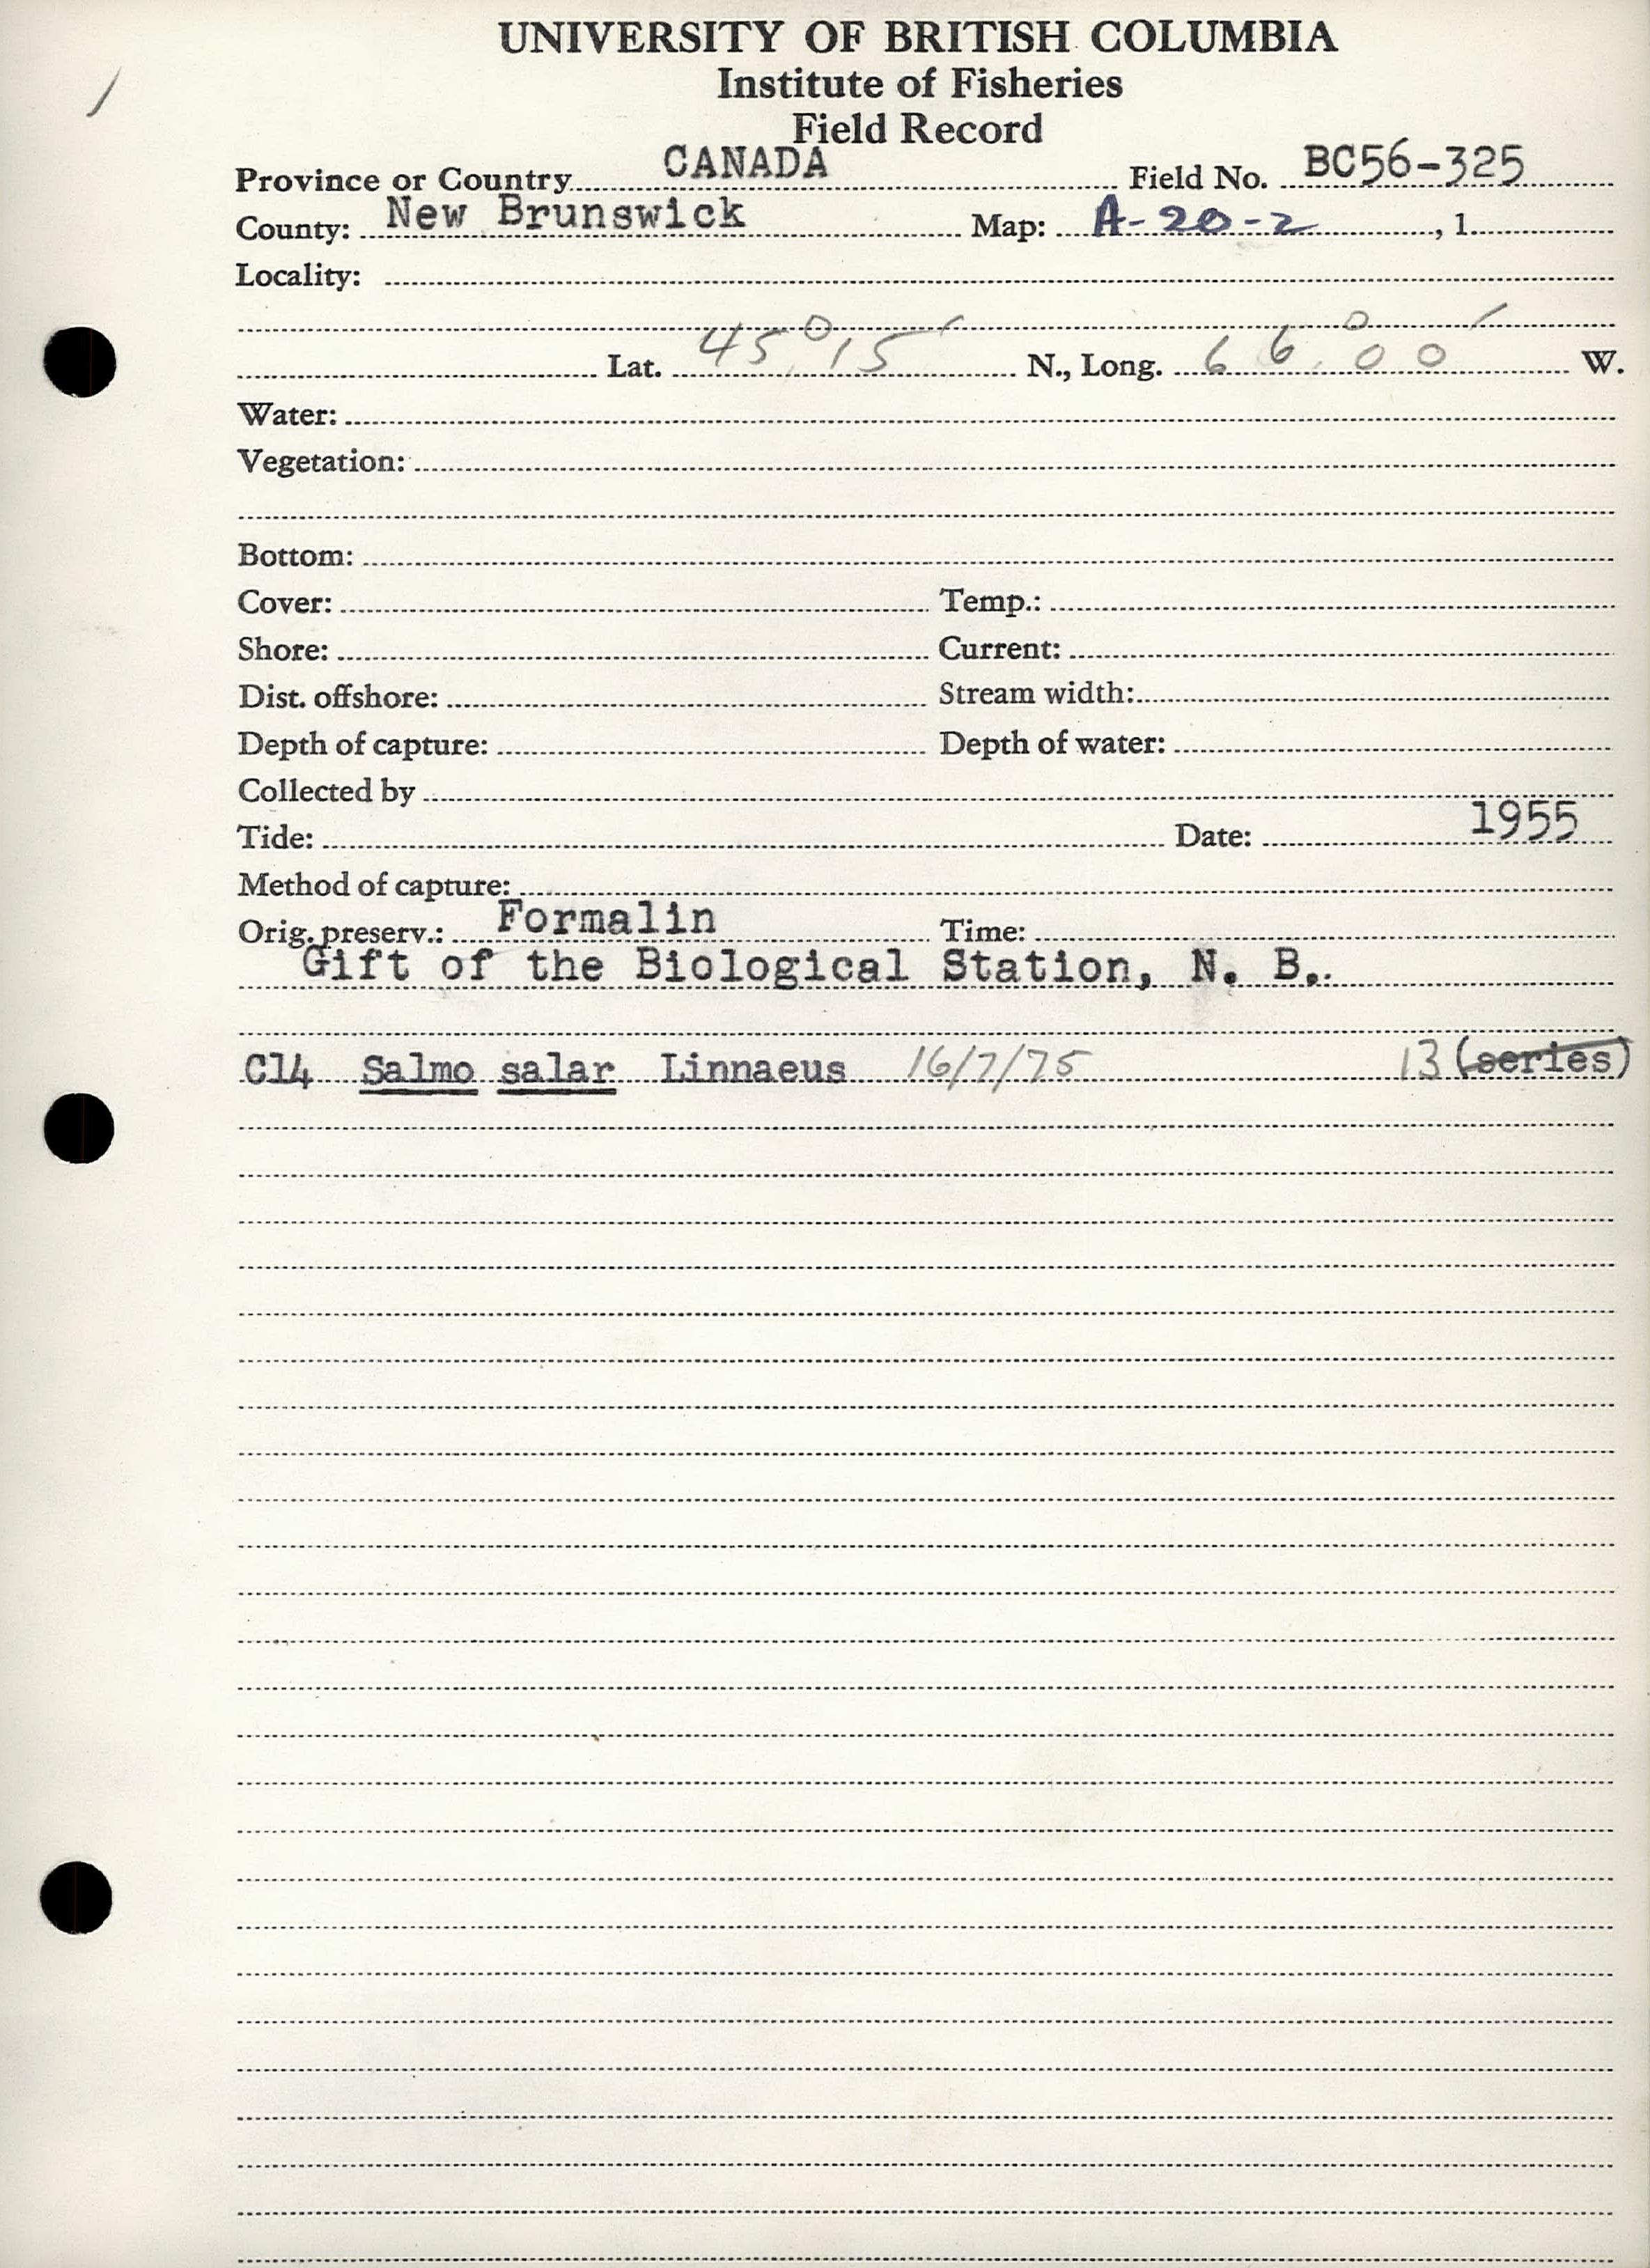 UNIVERSITY OF BRITISH COLUMBIA
Institute of Fisheries
Field Record
Province or Country CANADA Field No. BC56-325
County: New Brunswick Map: A-20-2, 1.
Locality:
Lat. 45°15' N., Long. 66°00' W.
Water:
Vegetation:
Bottom:
Cover: Temp.:
Shore: Current:
Dist. offshore: Stream width:
Depth of capture: Depth of water:
Collected by
Tide: Date: 1955
Method of capture:
Orig. preserv.: Formalin Time:
Gift of the Biological Station, N. B..
C14 Salmo salar Linnaeus 16/7/75 13 (series)